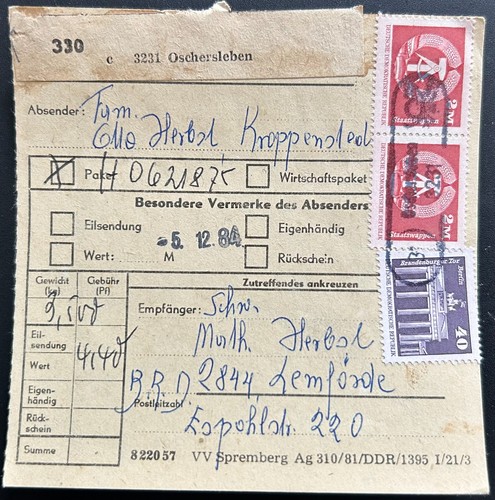 330 c 3231 Oschersleben
Absender: Fam.
Otto Herbst Kroppenstedt
Paket 0621875 Wirtschaftspaket
Besondere Vermerke des Absenders
Eilsendung Eigenhändig
-5. 12. 84
Wert: M Rückschein
Zutreffendes ankreuzen
Gewicht (kg) Gebühr (Pf)
Eil-
sendung
Wert
4,40
Eigen-
händig
Rück-
schein
Summe
Empfänger: Schw.
Math. Herbst
B.R.D. 2844 Lemförde
Postleitzahl
Espohlstr. 220
822057 VV Spremberg Ag 310/81/DDR/1395 I/21/3
DEUTSCHE DEMOKRATISCHE REPUBLIK
Staatswappen
2 M
DEUTSCHE DEMOKRATISCHE REPUBLIK
Staatswappen
2 M
Brandenburger Tor Berlin
DEUTSCHE DEMOKRATISCHE REPUBLIK
40